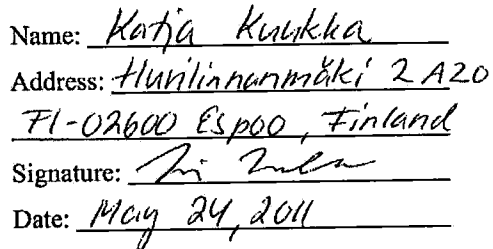 Name: Katja Kuukka
Address: Hurilinnanmäki 2 A20
FI-02600 Espoo, Finland
Signature:
Date: May 24, 2011